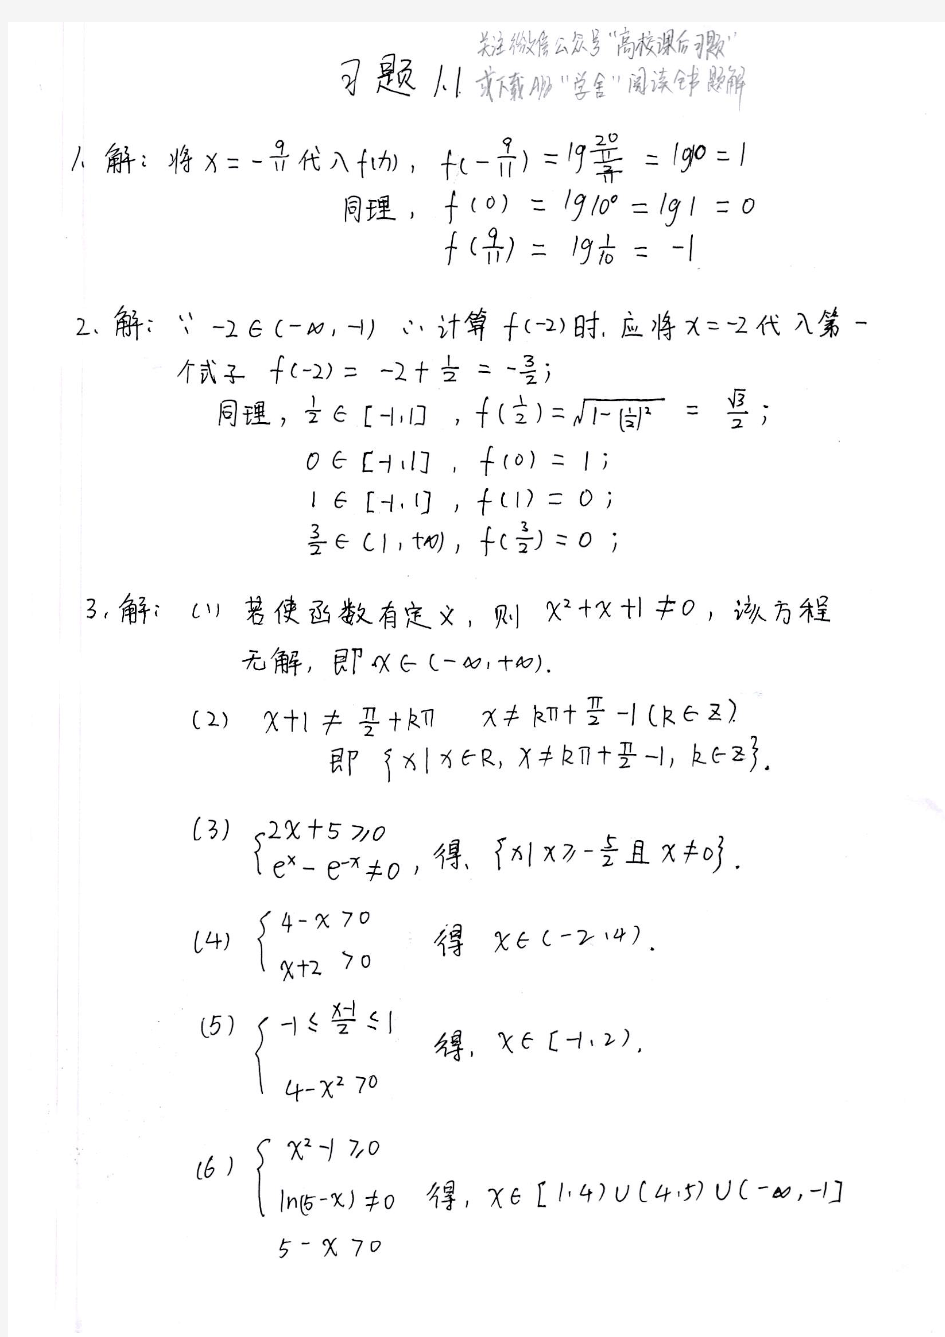 关注微信公众号"高校课后习题"
习题1.1 或下载APP"学舍"阅读全书题解
1、解：将 x = -9/11 代入f(x)， f(-9/11) = lg (20/11)/(2/11) = lg10 = 1
同理， f(0) = lg10⁰ = lg1 = 0
f(9/11) = lg 1/10 = -1
2、解：∵ -2∈(-∞, -1) ∴ 计算 f(-2)时, 应将 x=-2代入第一
个式子 f(-2) = -2+1/2 = -3/2；
同理，1/2 ∈ [-1,1] ，f(1/2) = √(1-(1/2)²) = √3/2；
0 ∈ [-1,1] ，f(0) = 1；
1 ∈ [-1,1] ，f(1) = 0；
3/2 ∈ (1, +∞)，f(3/2) = 0；
3、解： (1) 若使函数有定义，则 x²+x+1≠0，该方程
无解，即 x∈(-∞,+∞).
(2) x+1 ≠ π/2+kπ x≠kπ+π/2-1(k∈Z).
即 {x|x∈R, x≠kπ+π/2-1, k∈Z}.
(3) {2x+5≥0
eˣ-e⁻ˣ≠0，得、{x|x≥-5/2 且 x≠0}.
(4) {4-x>0
x+2>0 得 x∈(-2,4).
(5) {-1≤(x-1)/2≤1
得, x∈[-1,2).
4-x²>0
(6) {x²-1≥0
ln(5-x)≠0 得, x∈[1,4)∪(4,5)∪(-∞,-1]
5-x>0